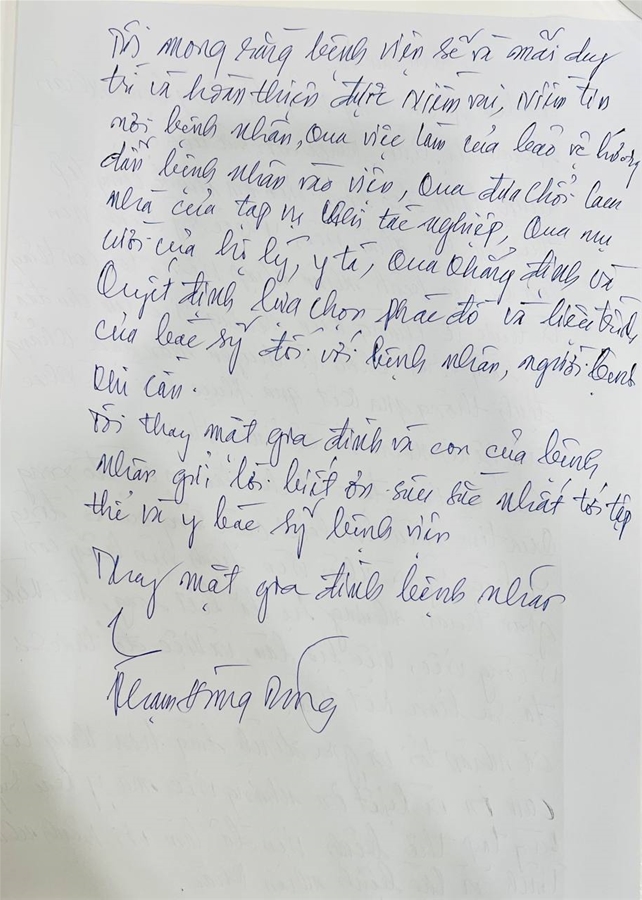 Tôi mong rằng bệnh viện sẽ và mãi duy
trì và hoàn thiện được niềm vui, niềm tin
nơi bệnh nhân, qua việc làm của bảo vệ hướng
dẫn bệnh nhân vào viện, qua đưa chổi lau
nhà của tạp vụ tác nghiệp, qua nụ
cười của hộ lý, y tá, qua khẳng định và
quyết định lựa chọn phác đồ và liệu trình
của bác sỹ đối với bệnh nhân, người bệnh
khi cần.
Tôi thay mặt gia đình và con của bệnh
nhân gửi lời biết ơn sâu sắc nhất tới tập
thể và y bác sỹ bệnh viện
Thay mặt gia đình bệnh nhân
Phạm Hùng Dũng